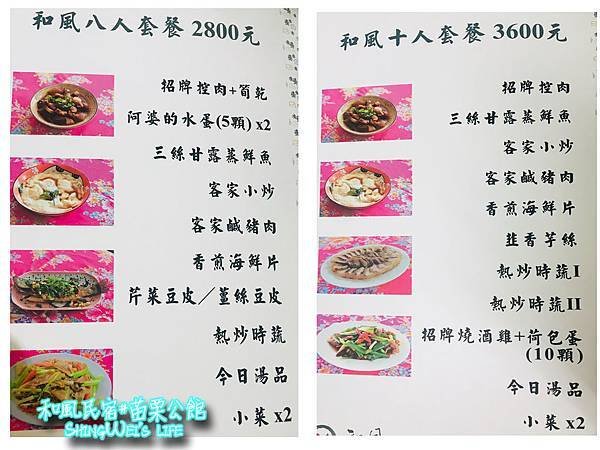 和風八人套餐 2800元
招牌控肉+筍乾
阿婆的水蛋(5顆) x2
三絲甘露蒸鮮魚
客家小炒
客家鹹豬肉
香煎海鮮片
芹菜豆皮／薑絲豆皮
熱炒時蔬
今日湯品
小菜 x2
和風民宿#苗栗公館
SHINGWEI'S LIFE
和風十人套餐 3600元
招牌控肉
三絲甘露蒸鮮魚
客家小炒
客家鹹豬肉
香煎海鮮片
韭香芋絲
熱炒時蔬I
熱炒時蔬II
招牌燒酒雞+荷包蛋
(10顆)
今日湯品
小菜 x2
和風